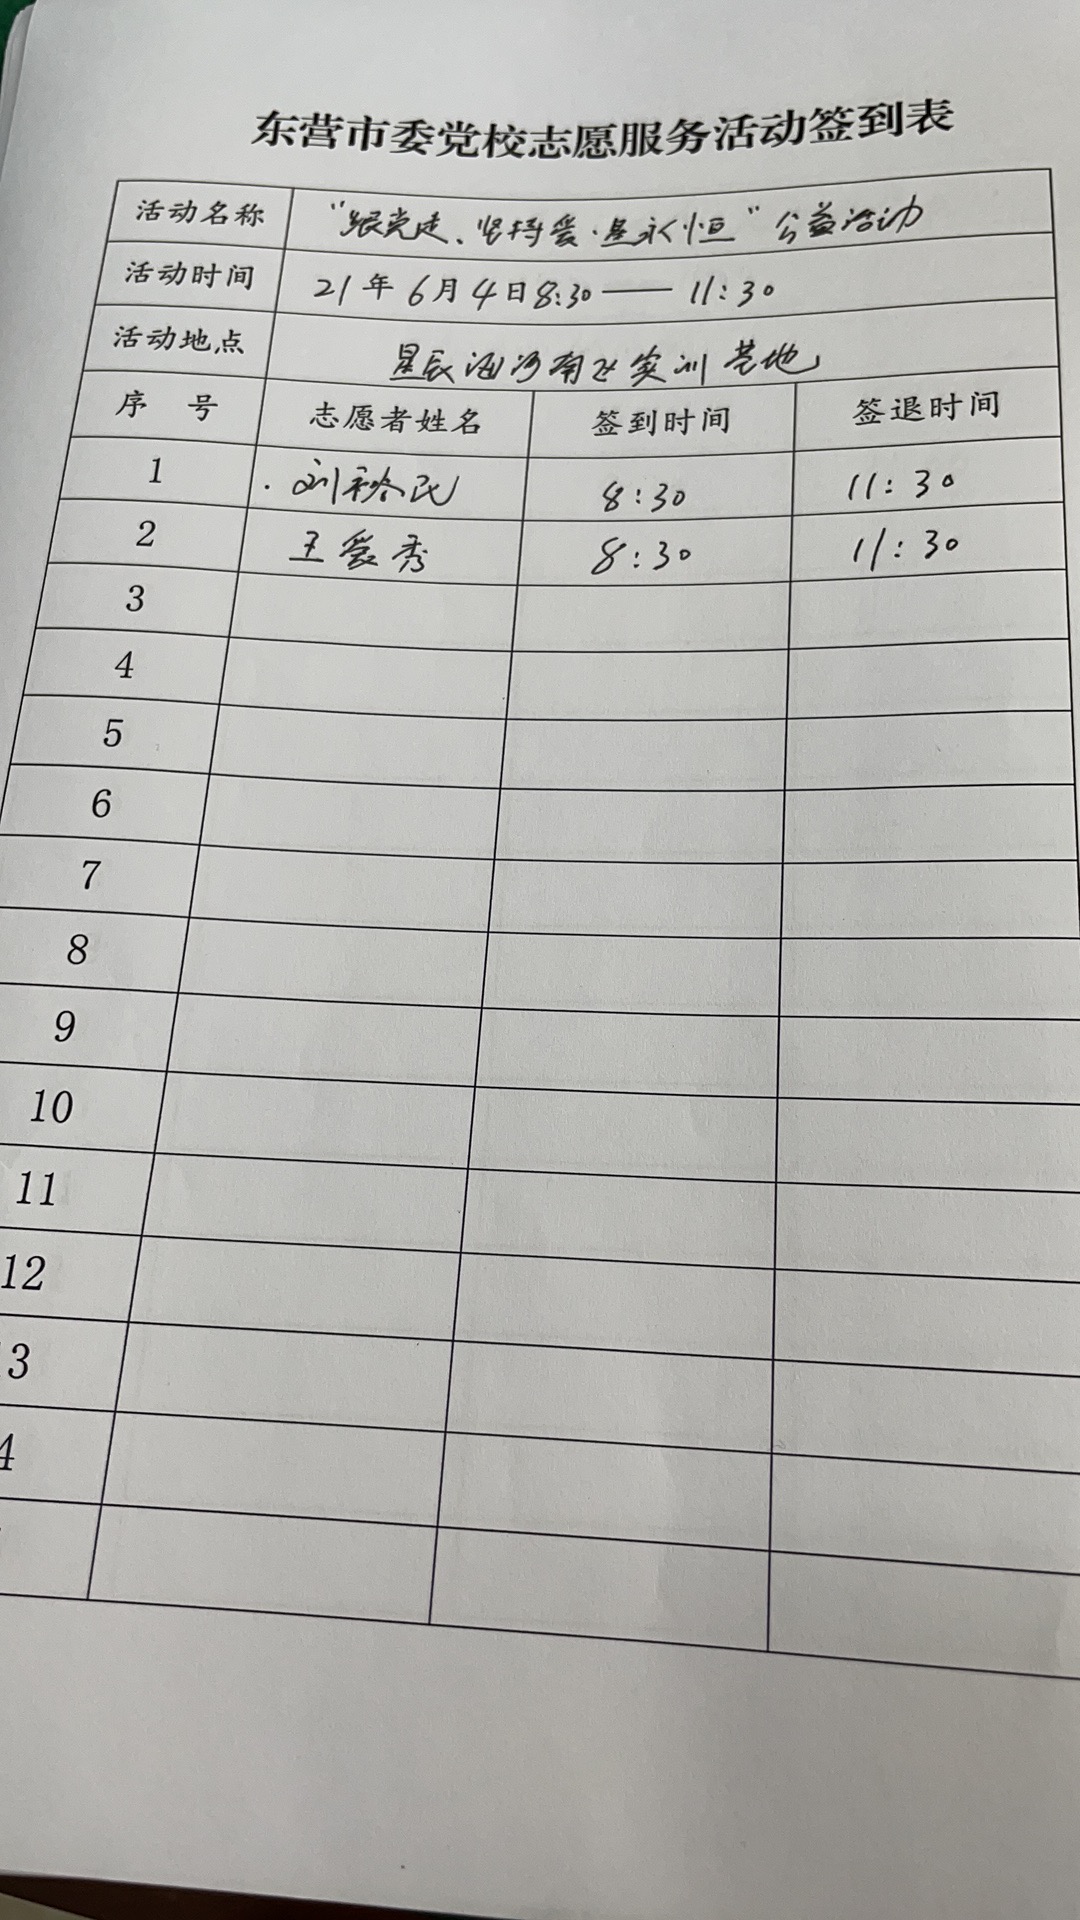 东营市委党校志愿服务活动签到表
活动名称 "跟党走、坚持爱·星永恒"公益活动
活动时间 21年6月4日8:30——11:30
活动地点 星辰 实训基地
序 号 志愿者姓名 签到时间 签退时间
1 刘裕民 8:30 11:30
2 王爱秀 8:30 11:30
3
4
5
6
7
8
9
10
11
12
3
4